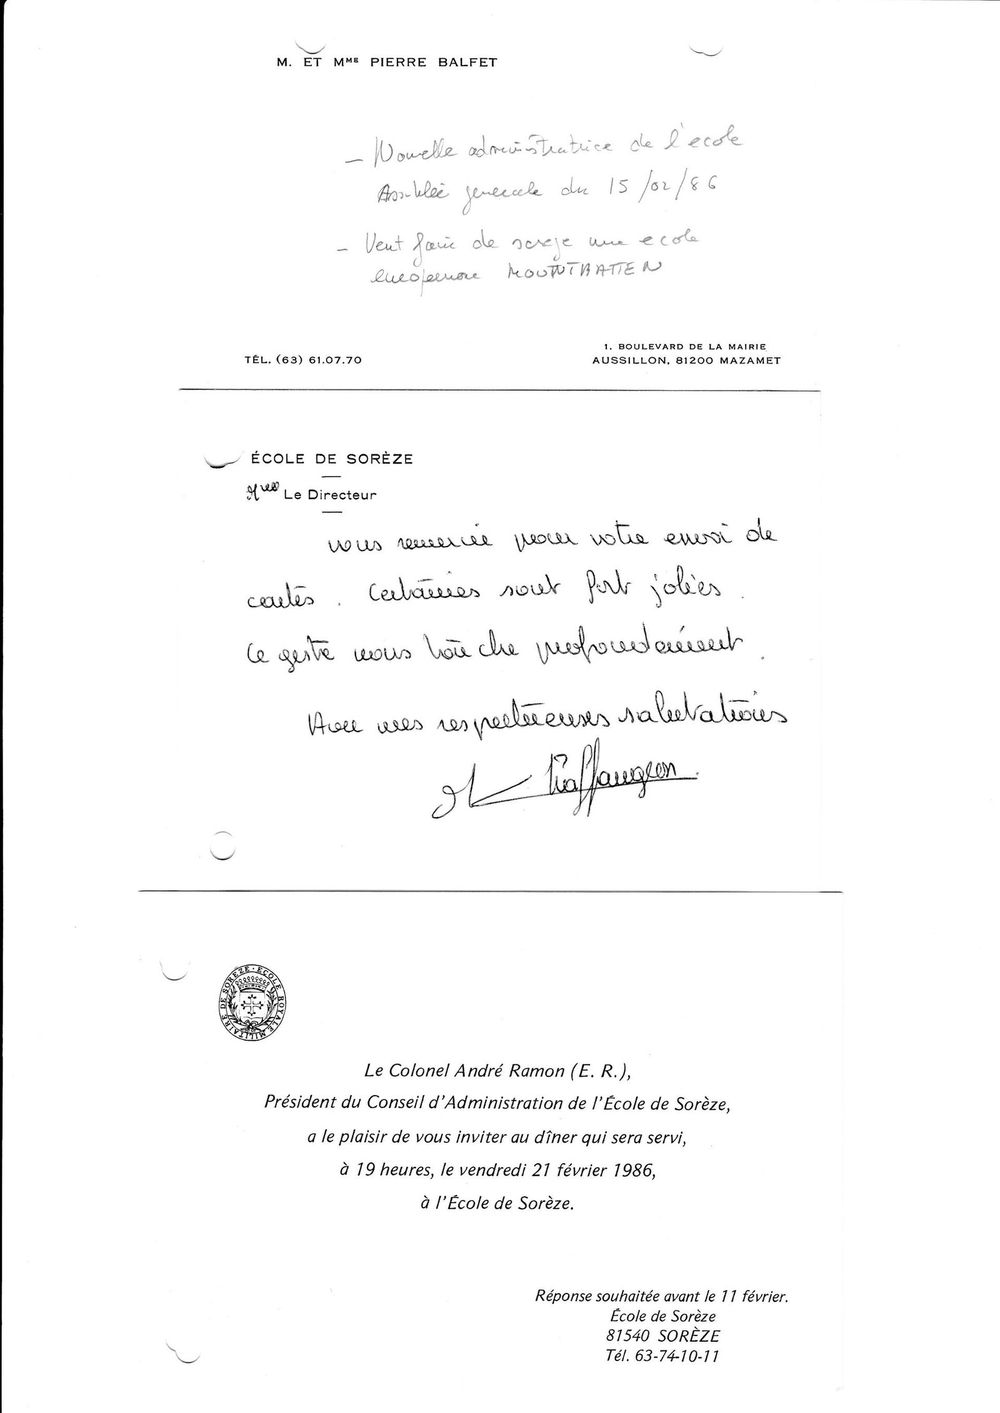 M. ET MME PIERRE BALFET
– Nouvelle administratrice de l'école
Assemblée generale du 15/02/86
– Veut faire de soreze une ecole
europeenne MOUNTBATTEN
TÉL. (63) 61.07.70
1. BOULEVARD DE LA MAIRIE
AUSSILLON, 81200 MAZAMET
ÉCOLE DE SORÈZE
Le Directeur
vous remercie pour votre envoi de
cartes. Certaines sont fort jolies.
Ce geste nous touche profondément.
Avec mes respectueuses salutations
ÉCOLE ROYALE MILITAIRE DE SORÈZE
Le Colonel André Ramon (E. R.),
Président du Conseil d'Administration de l'École de Sorèze,
a le plaisir de vous inviter au dîner qui sera servi,
à 19 heures, le vendredi 21 février 1986,
à l'École de Sorèze.
Réponse souhaitée avant le 11 février.
École de Sorèze
81540 SORÈZE
Tél. 63-74-10-11